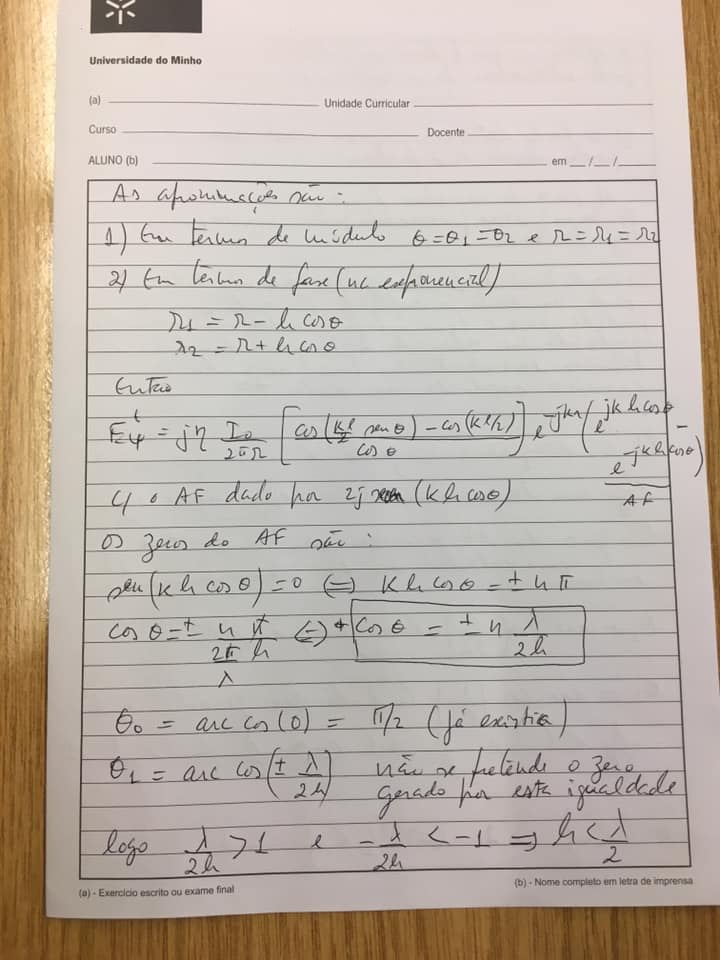 Universidade do Minho
(a) Unidade Curricular
Curso Docente
ALUNO (b) em __/__/__
As aproximações são:
1) Em termos de módulo θ=θ1=θ2 e r=r1=r2
2) Em termos de fase (na exponencial)
r1 = r - h cosθ
r2 = r + h cosθ
Então
Eψ^t = jη I0/(2πr) [(cos(kl/2 senθ) - cos(kl/2))/cosθ] e^(-jkr) (e^(jkh cosθ) - e^(-jkh cosθ))
AF
c/ o AF dado por 2j sen(kh cosθ)
Os zeros do AF são:
sen(kh cosθ)=0 (=) kh cosθ = ± nπ
cosθ = ± nπ/((2π/λ) h) (=) cosθ = ± n λ/2h
θ0 = arc cos(0) = π/2 (já existia)
θ1 = arc cos(± λ/2h) não se pretende o zero
gerado por esta igualdade
logo λ/2h > 1 e -λ/2h < -1 ⇒ h < λ/2
(a) - Exercício escrito ou exame final
(b) - Nome completo em letra de imprensa